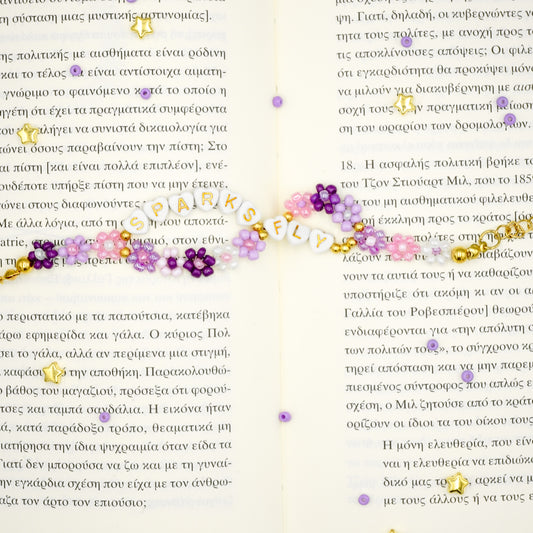 τη σύσταση μιας μυστικής αστυνομίας].
της πολιτικής με αισθήματα είναι ρόδινη
και το τέλος να είναι αντίστοιχα αιματη-
γνώριμο το φαινόμενο κατά το οποίο η
ηγέτη ότι έχει τα πραγματικά συμφέροντα
καταλήγει να συνιστά δικαιολογία για
όσους παραβαίνουν την πίστη; Στο
[και είναι πολλά επιπλέον], ενέ-
υπήρξε πίστη που να μην έτεινε,
Με άλλα λόγια, από τη
στον εθνι-
SPARKS FLY
το περιστατικό με τα παπούτσια, κατέβηκα
εφημερίδα και γάλα. Ο κύριος Πολ
το γάλα, αλλά αν περίμενα μια στιγμή,
την αποθήκη. Παρακολουθώ-
βάθος του μαγαζιού, πρόσεξα ότι φορού-
και ταμπά σανδάλια. Η εικόνα ήταν
κατά παράδοξο τρόπο, θεαματική μη
την ίδια ψυχραιμία όταν είδα τα
Γιατί δεν μπορούσα να ζω και με τη γυναί-
την εγκάρδια σχέση που είχα με τον άνθρω-
τον άρτο τον επιούσιο;
ψη. Γιατί, δηλαδή, οι κυβερνώντες να
τητα τους πολίτες, με ανοχή προς
τις αποκλίνουσες απόψεις; Οι φιλε
ότι εγκαρδιότητα θα προκύψει μόνο
να μιλούν για διακυβέρνηση με
σοχή τους στην πραγματική μείωση
ση του ωραρίου των δρομολογίων.
18. Η ασφαλής πολιτική βρήκε το
του Τζον Στιούαρτ Μιλ, που το 185
του μη αισθηματικού φιλελευθε
έκκληση προς το κράτος
για τα
νουν τα αυτιά τους ή να καθαρίζου
υποστήριζε ότι ακόμη κι αν οι α
Γαλλία του Ροβεσπιέρου] θεωρού
ενδιαφέρονται για «την απόλυτη
των πολιτών τους», το σύγχρονο κρ
τηρεί απόσταση και να μην παρεμ
πιεσμένος σύντροφος που απλώς ε
σχέση, ο Μιλ ζητούσε από το κράτ
ορίζουν οι ίδιοι τα του οίκου τους
Η μόνη ελευθερία, που είνα
ναι η ελευθερία να επιδιώκο
δικό μας τρόπο, αρκεί να μ
με τους άλλους ή να τους ε